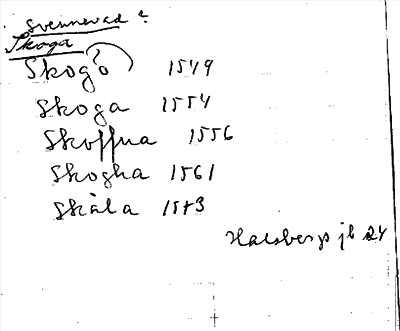 Svennevad ?
Skoga
Skogo ? 1549
Skoga 1554
Skoffua 1556
Skogha 1561
Skåla 1573
Halsbergs jb 24